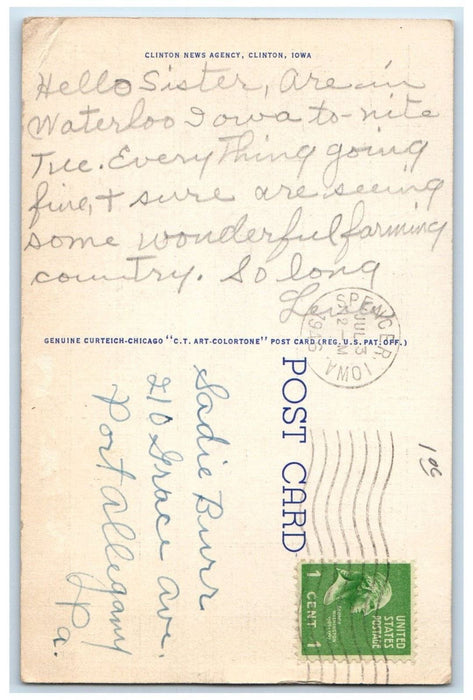 CLINTON NEWS AGENCY, CLINTON, IOWA
Hello Sister, Are in
Waterloo Iowa to-nite
Tue. Everything going
fine, + sure are seeing
some wonderful farming
country. So long
GENUINE CURTEICH-CHICAGO "C.T. ART-COLORTONE" POST CARD (REG. U.S. PAT. OFF.)
SPENCER, IOWA
JUL 3
12 - M
1946
POST CARD
Sadie Burr
210 Grace Ave.
Port Allegany
Pa.
UNITED
STATES
POSTAGE
1 CENT 1